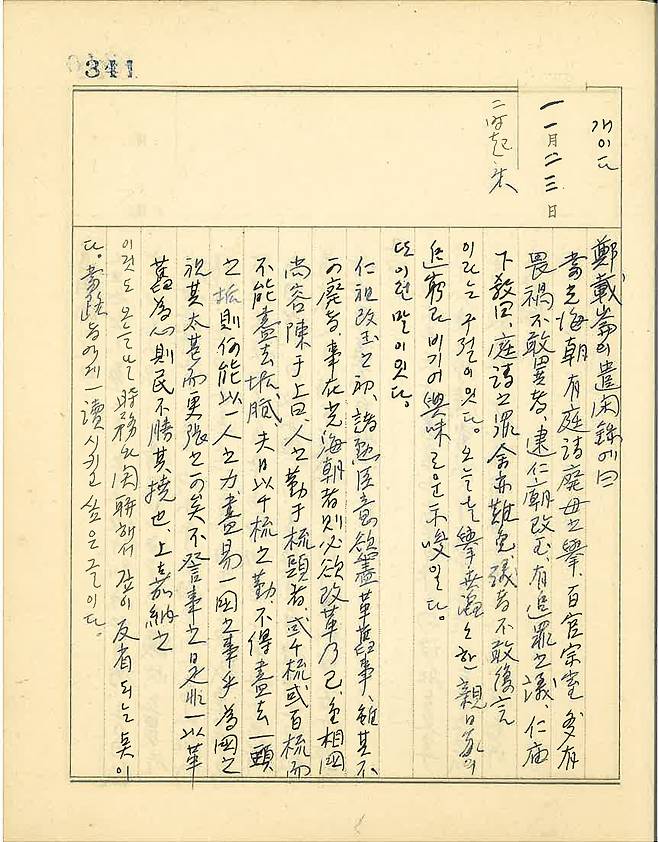 341
개이다
一一月二三日
二時起床
鄭載崙의 遣閑錄에曰
當光海朝有庭請廢母之擧、百官宗室多有
畏禍不敢異者、逮仁廟改玉有追罪之議、仁廟
下敎曰、庭請之罪 余亦難免 議者不敢復言
이라는 구절이 있다。 오늘은 擧世滔々한 親日家의
追窮과 비기어 興味로운
또 이런 말이 있다。
仁祖改玉之初、諸勳臣意欲盡革舊事、雖其不
可廢者、事在光海朝者則必欲改革乃已、金相國
尙容陳于上曰、人之勤于梳頭者、或千梳或百梳而
不能盡去垢膩、夫日以千梳之勤、不得盡去一頭
之垢則何能以一人之力盡易一國之事乎 爲國之
視其太甚而更張之可矣 不啻事之是非 一以革
舊爲心則民不勝其撓也、上嘉納之
이것도 오늘날 時務와 関聯해서 깊이 反省되는 못이
다。 當路者에게 一讀시키고 싶은 글이다。